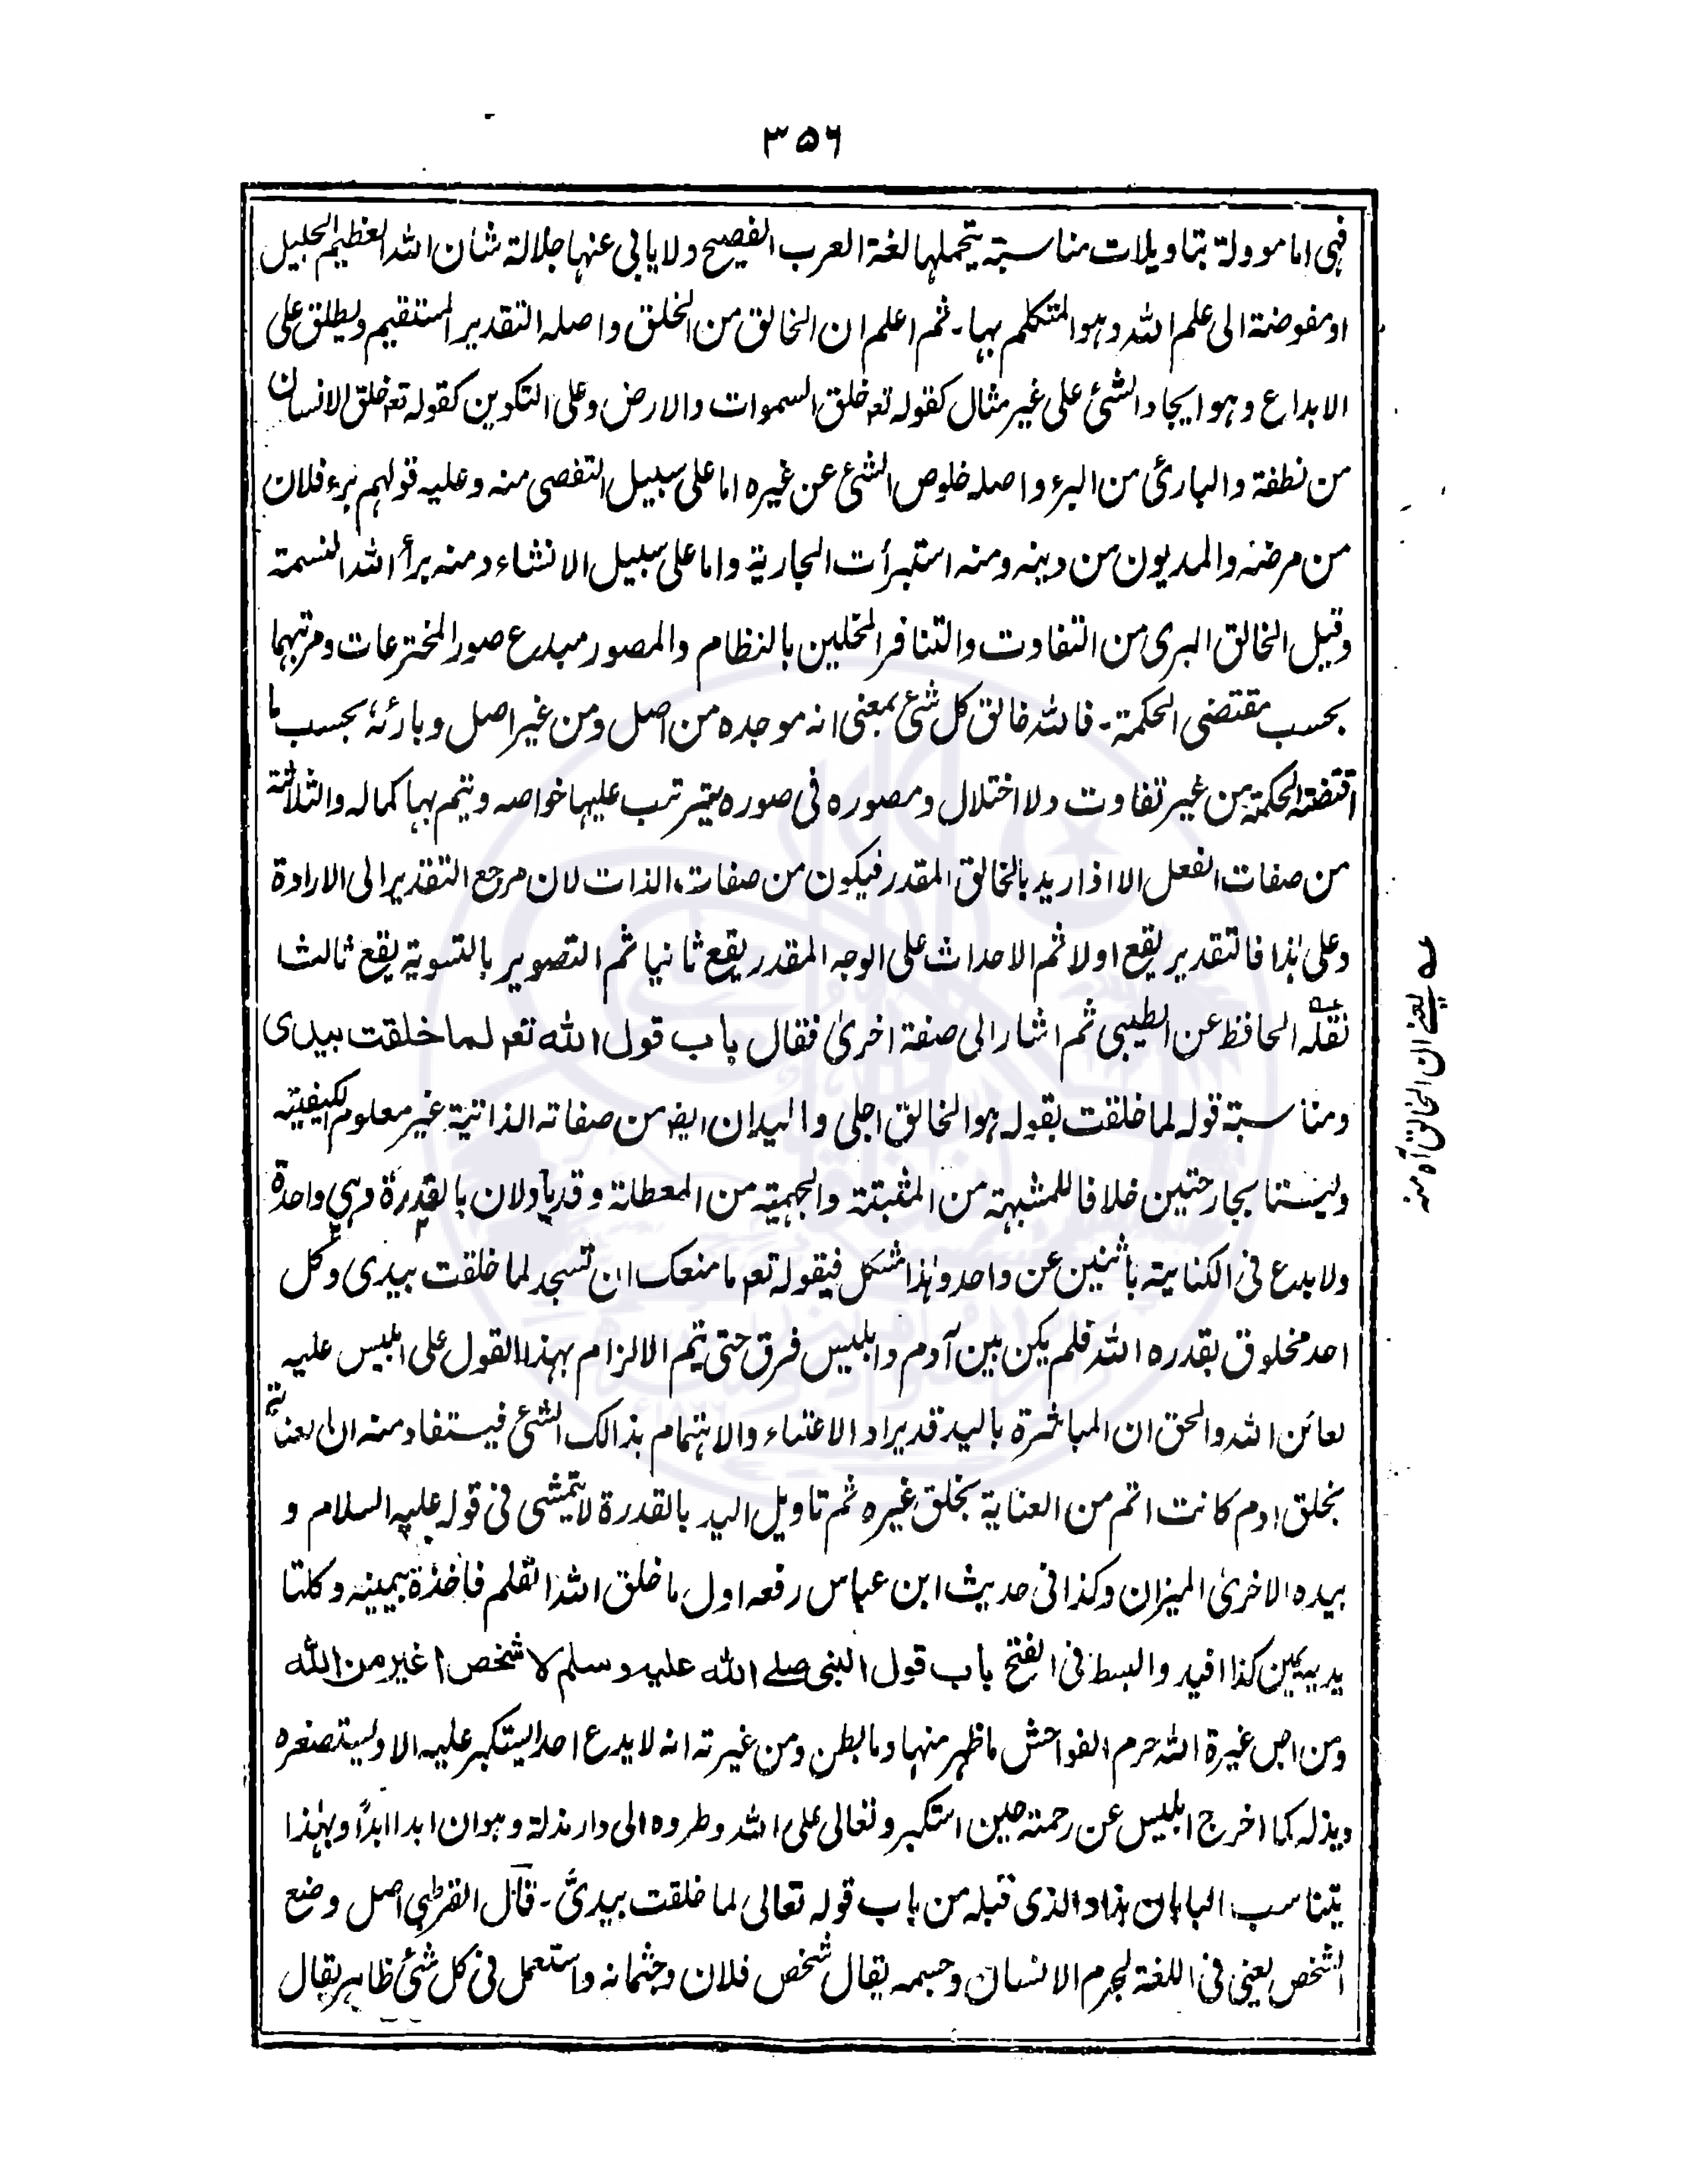 ٣٥٦
فہی اما موولة بتاویلات مناسبة یتحملہا لغة العرب الفصیح ولا یابی عنہا جلالة شان اللہ العظیم الجلیل
او مفوضة الی علم اللہ وہو المتکلم بہا۔ ثم اعلم ان الخالق من الخلق واصله التقدیر المستقیم ویطلق علی
الابداع وہو ایجاد الشئ علی غیر مثال کقوله تعہ خلق السموات والارض وعلی التکوین کقوله تعہ خلق الانسان
من نطفة والبارئ من البرء واصله خلوص الشئ عن غیره اما علی سبیل التفصی منه وعلیه قولہم برء فلان
من مرضه والمدیون من دینه ومنه استبرأت الجاریة واما علی سبیل الانشاء ومنه برأ اللہ النسمة
وقیل الخالق البری من التفاوت والتنافر المخلین بالنظام والمصور مبدع صور المخترعات ومرتبہا
بحسب مقتضی الحکمة۔ فاللہ خالق کل شئ بمعنی انه موجده من اصل ومن غیر اصل وبارئهٗ بحسب ما
اقتضته الحکمة من غیر تفاوت ولا اختلال ومصوره فی صوره یترتب علیہا خواصه ویتم بہا کماله والثلاثة
من صفات الفعل الا اذا ارید بالخالق المقدر فیکون من صفات الذات لان مرجع التقدیر الی الارادة
وعلی ہٰذا فالتقدیر یقع اولا ثم الاحداث علی الوجه المقدر یقع ثانیا ثم التصویر بالتسویة یقع ثالثا
نقله الحافظ عن الطیبی ثم اشار الی صفة اخریٰ فقال باب قول الله تعہ لما خلقت بیدی
ومناسبة قوله لما خلقت بقوله ہو الخالق اجلی والیدان ایضہ من صفاته الذاتیة غیر معلوم الکیفیة
ولیستا بجارحتین خلافا للمشبہة من المثبتة والجہمیة من المعطلة وقد یاولان بالقدرة وہی واحدة
ولا بدع فی الکنایة باثنین عن واحد وہٰذا مشکل فیقوله تعہ ما منعک ان تسجد لما خلقت بیدی وکل
احد مخلوق بقدره اللہ فلم یکن بین آدم وابلیس فرق حتی یتم الالزام بہذا القول علی ابلیس علیه
لعائن اللہ والحق ان المباشرة بالید قد یراد الاعتناء والاہتمام بذالک الشئ فیستفاد منه ان العنایة
بخلق ادم کانت اتم من العنایة بخلق غیره ثم تاویل الید بالقدرة لا یتمشی فی قوله علیه السلام و
بیده الاخریٰ المیزان وکذا فی حدیث ابن عباس رفعه اول ما خلق اللہ القلم فاخذة بیمینه وکلتا
یدیه یمین کذا افید والبسط فی الفتح باب قول النبی صلے الله علیه وسلم لا شخص اغیر من الله
ومن اجل غیرة اللہ حرم الفواحش ما ظہر منہا وما بطن ومن غیرته انه لا یدع احدا یستکبر علیه الا ویستصغره
ویذله کما اخرج ابلیس عن رحمته حین استکبر وتعالی علی اللہ وطروه الی دار مذلة وہوان ابدا ابدًا وبہٰذا
یتناسب البابان ہذا والذی قبله من باب قوله تعالی لما خلقت بیدیَّ۔ قال القرطبی اصل وضع
الشخص یعنی فی اللغة لجرم الانسان وجسمه یقال شخص فلان وجثمانه واستعمل فی کل شئ ظاہر یقال
لہ یعنے ان الخالق اٰہ منہ